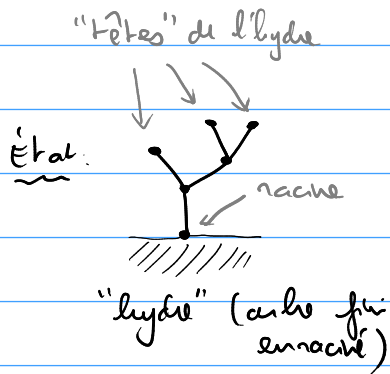 "têtes" de l'hydre
État:
racine
"hydre" (arbre fini
enraciné)